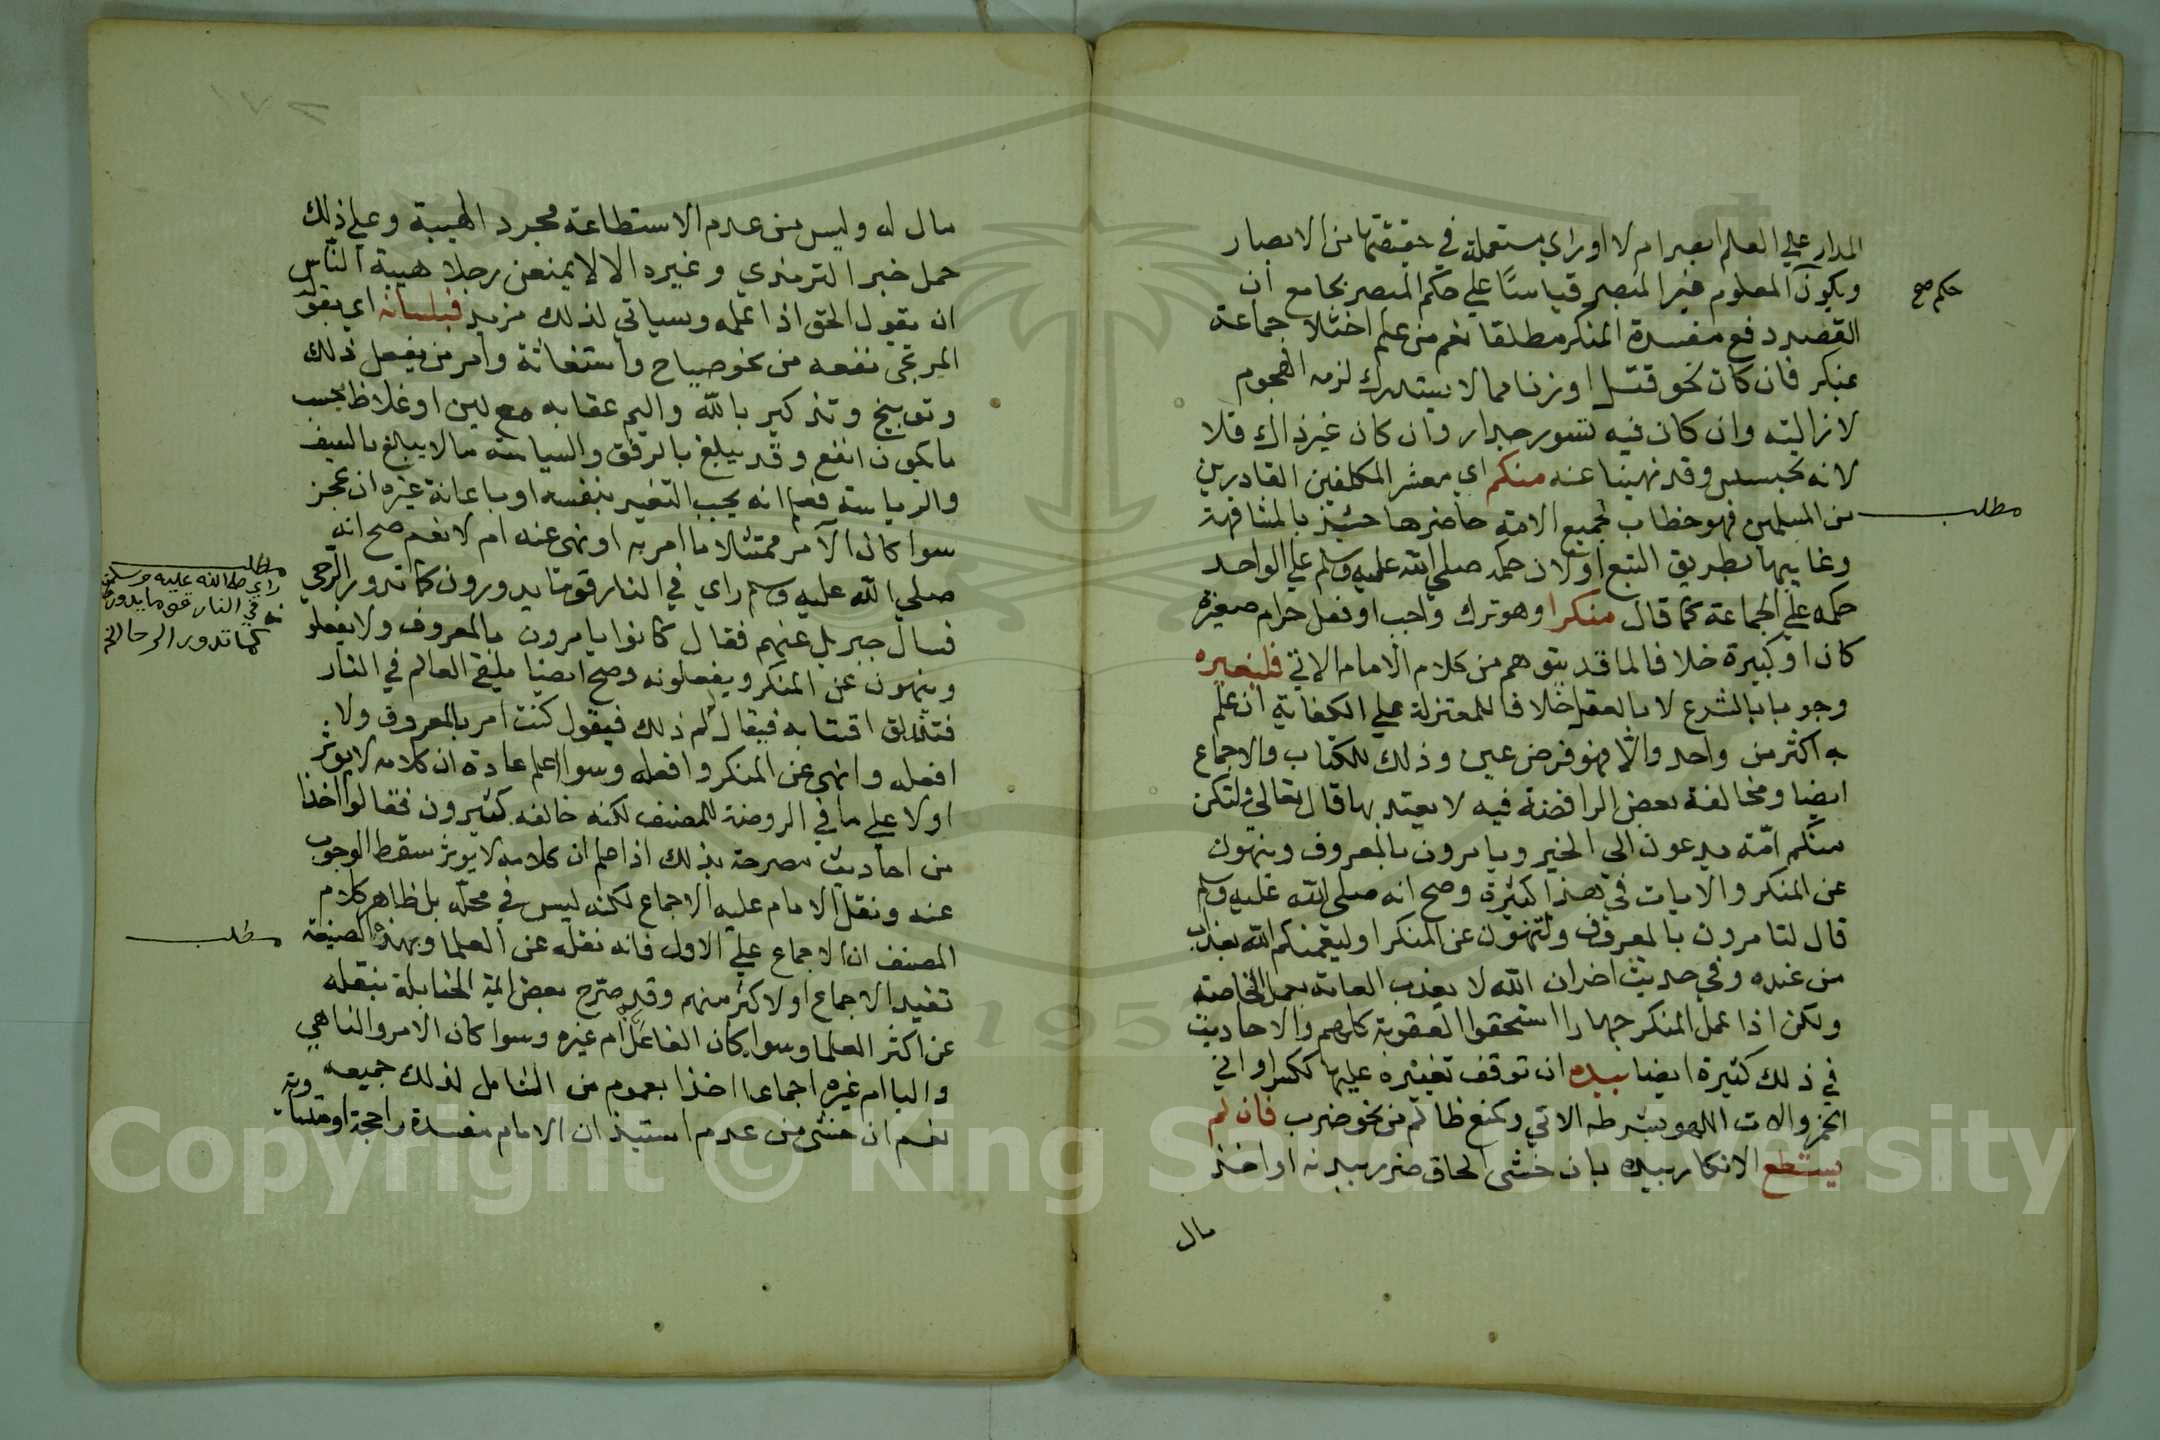 المدار علي العلم ابصر ام لا او راي مستعملة في حقيقتها من الابصار
ويكون المعلوم غير المبصر قياسا علي حكم المبصر بجامع ان
حكم صح
القصد دفع مفسدة المنكر مطلقا نعم من علم اختلا جماعة
بمنكر فان كان نحو قتل او زنا مما لا يستدرك لزمه الهجوم
لازالته وان كان فيه تسور جدار وان كان غير ذاك فلا
لانه تجسس وقد نهينا عنه منكم اي معشر المكلفين القادرين
من المسلمين فهو خطاب لجميع الامة حاضرها حينئذ بالمشافهة
مطلب
وغايبها بطريق التبع او لان حكمه صلي الله عليه وسلم علي الواحد
حكمه علي الجماعة كما قال منكرا وهو ترك واجب او فعل حرام صغيرة
كان او كبيرة خلافا لما قد يتوهم من كلام الامام الاتي فليغيره
وجوبا بالشرع لا بالعقل خلافا للمعتزلة علي الكفاية ان علم
به اكثر من واحد والا فهو فرض عين وذلك للكتاب والاجماع
ايضا ومخالفة بعض الرافضة فيه لا يعتد بها قال تعالي ولتكن
منكم امة يدعون الي الخير ويامرون بالمعروف وينهون
عن المنكر والايات في هذا كثيرة وصح انه صلي الله عليه وسلم
قال لتامرون بالمعروف ولتنهون عن المنكر او ليعمنكم الله بعذاب
من عنده وفي حديث اخر ان الله لا يعذب العامة بعمل الخاصة
ولكن اذا عمل المنكر جهارا استحقوا العقوبة كلهم والاحاديث
في ذلك كثيرة ايضا بيده ان توقف تغييره عليها ككسر اواني
الخمر والات اللهو بشرطه الاتي وكمنع ظالم من نحو ضرب فان لم
يستطع الانكار بيده بان خشي الحاق ضرر ببدنه او اخذ
مال
مال له وليس من عدم الاستطاعة مجرد الهيبة وعلي ذلك
حمل خبر الترمذي وغيره الا لا يمنعن رجلا هيبة الناس
ان يقول الحق اذا علمه وسياتي لذلك مزيد فبلسانه اي بقوله
المرتجي نفعه من نحو صياح واستغاثة وامر من يفعل ذلك
وتوبيخ وتذكير بالله واليم عقابه مع لين او غلاظ بحسب
ما يكون انفع وقد يبلغ بالرفق والسياسة ما لا يبلغ بالسيف
والرياسة فعلم انه يجب التغير بنفسه او باعانة غيره ان عجز
سوا كان الامر ممتثلا ما امر به او نهي عنه ام لا نعم صح انه
صلي الله عليه وسلم راي في النار قوما يدورون كما تدور الرحي
مطلب
راي صلي الله عليه وسلم
في النار قوما يدورون
كما تدور الرحا الخ
فسال جبريل عنهم فقال كانوا يامرون بالمعروف ولا يفعلو
وينهون عن المنكر ويفعلونه وصح ايضا يلقي العالم في النار
فتندلق اقتابه فيقال لم ذلك فيقول كنت امر بالمعروف ولا
افعله وانهي عن المنكر وافعله وسوا اعلم عادة ان كلامه لا يوثر
او لا علي ما في الروضة للمصنف لكنه خالفه كثيرون فقالوا اخذا
من احاديث مصرحة بذلك اذا علم ان كلامه لا يوثر سقط الوجوب
عنه ونقل الامام عليه الاجماع لكنه ليس في محله بل ظاهر كلام
المصنف ان الاجماع علي الاول فانه نقله عن العلما وبهذه الصيغة
مطلب
تفيد الاجماع او لاكثر منهم وقد صرح بعض ايمة الحنابلة بنقله
عن اكثر العلما وسوا كان الفاعل ام غيره وسوا كان الامر والناهي
واليا ام غيره اجماعا اخذا بعموم من الشامل لذلك جميعه
نعم ان خشي من عدم استيذان الامام مفسدة راجحة او